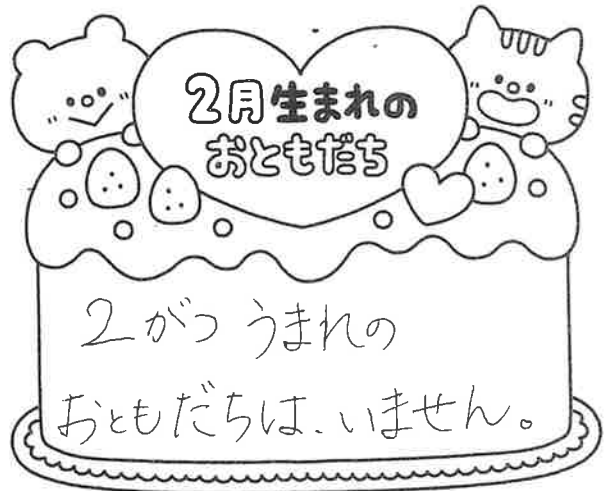 2月生まれの
おともだち
2がつ うまれの
おともだちは、いません。